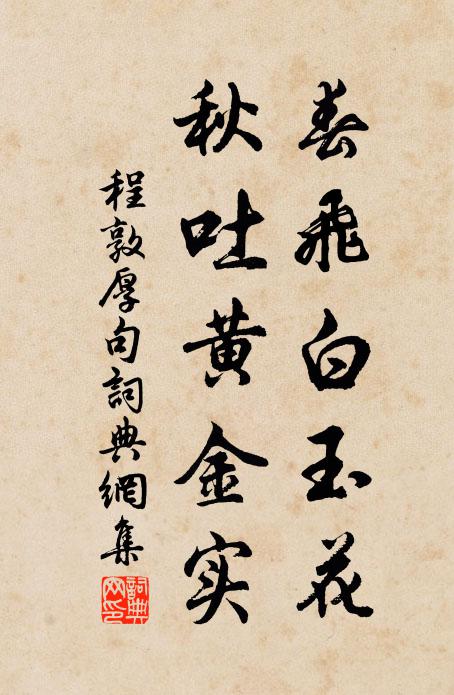 春飛白玉花
秋吐黄金实
程敦厚句詞典網集
詞典網印